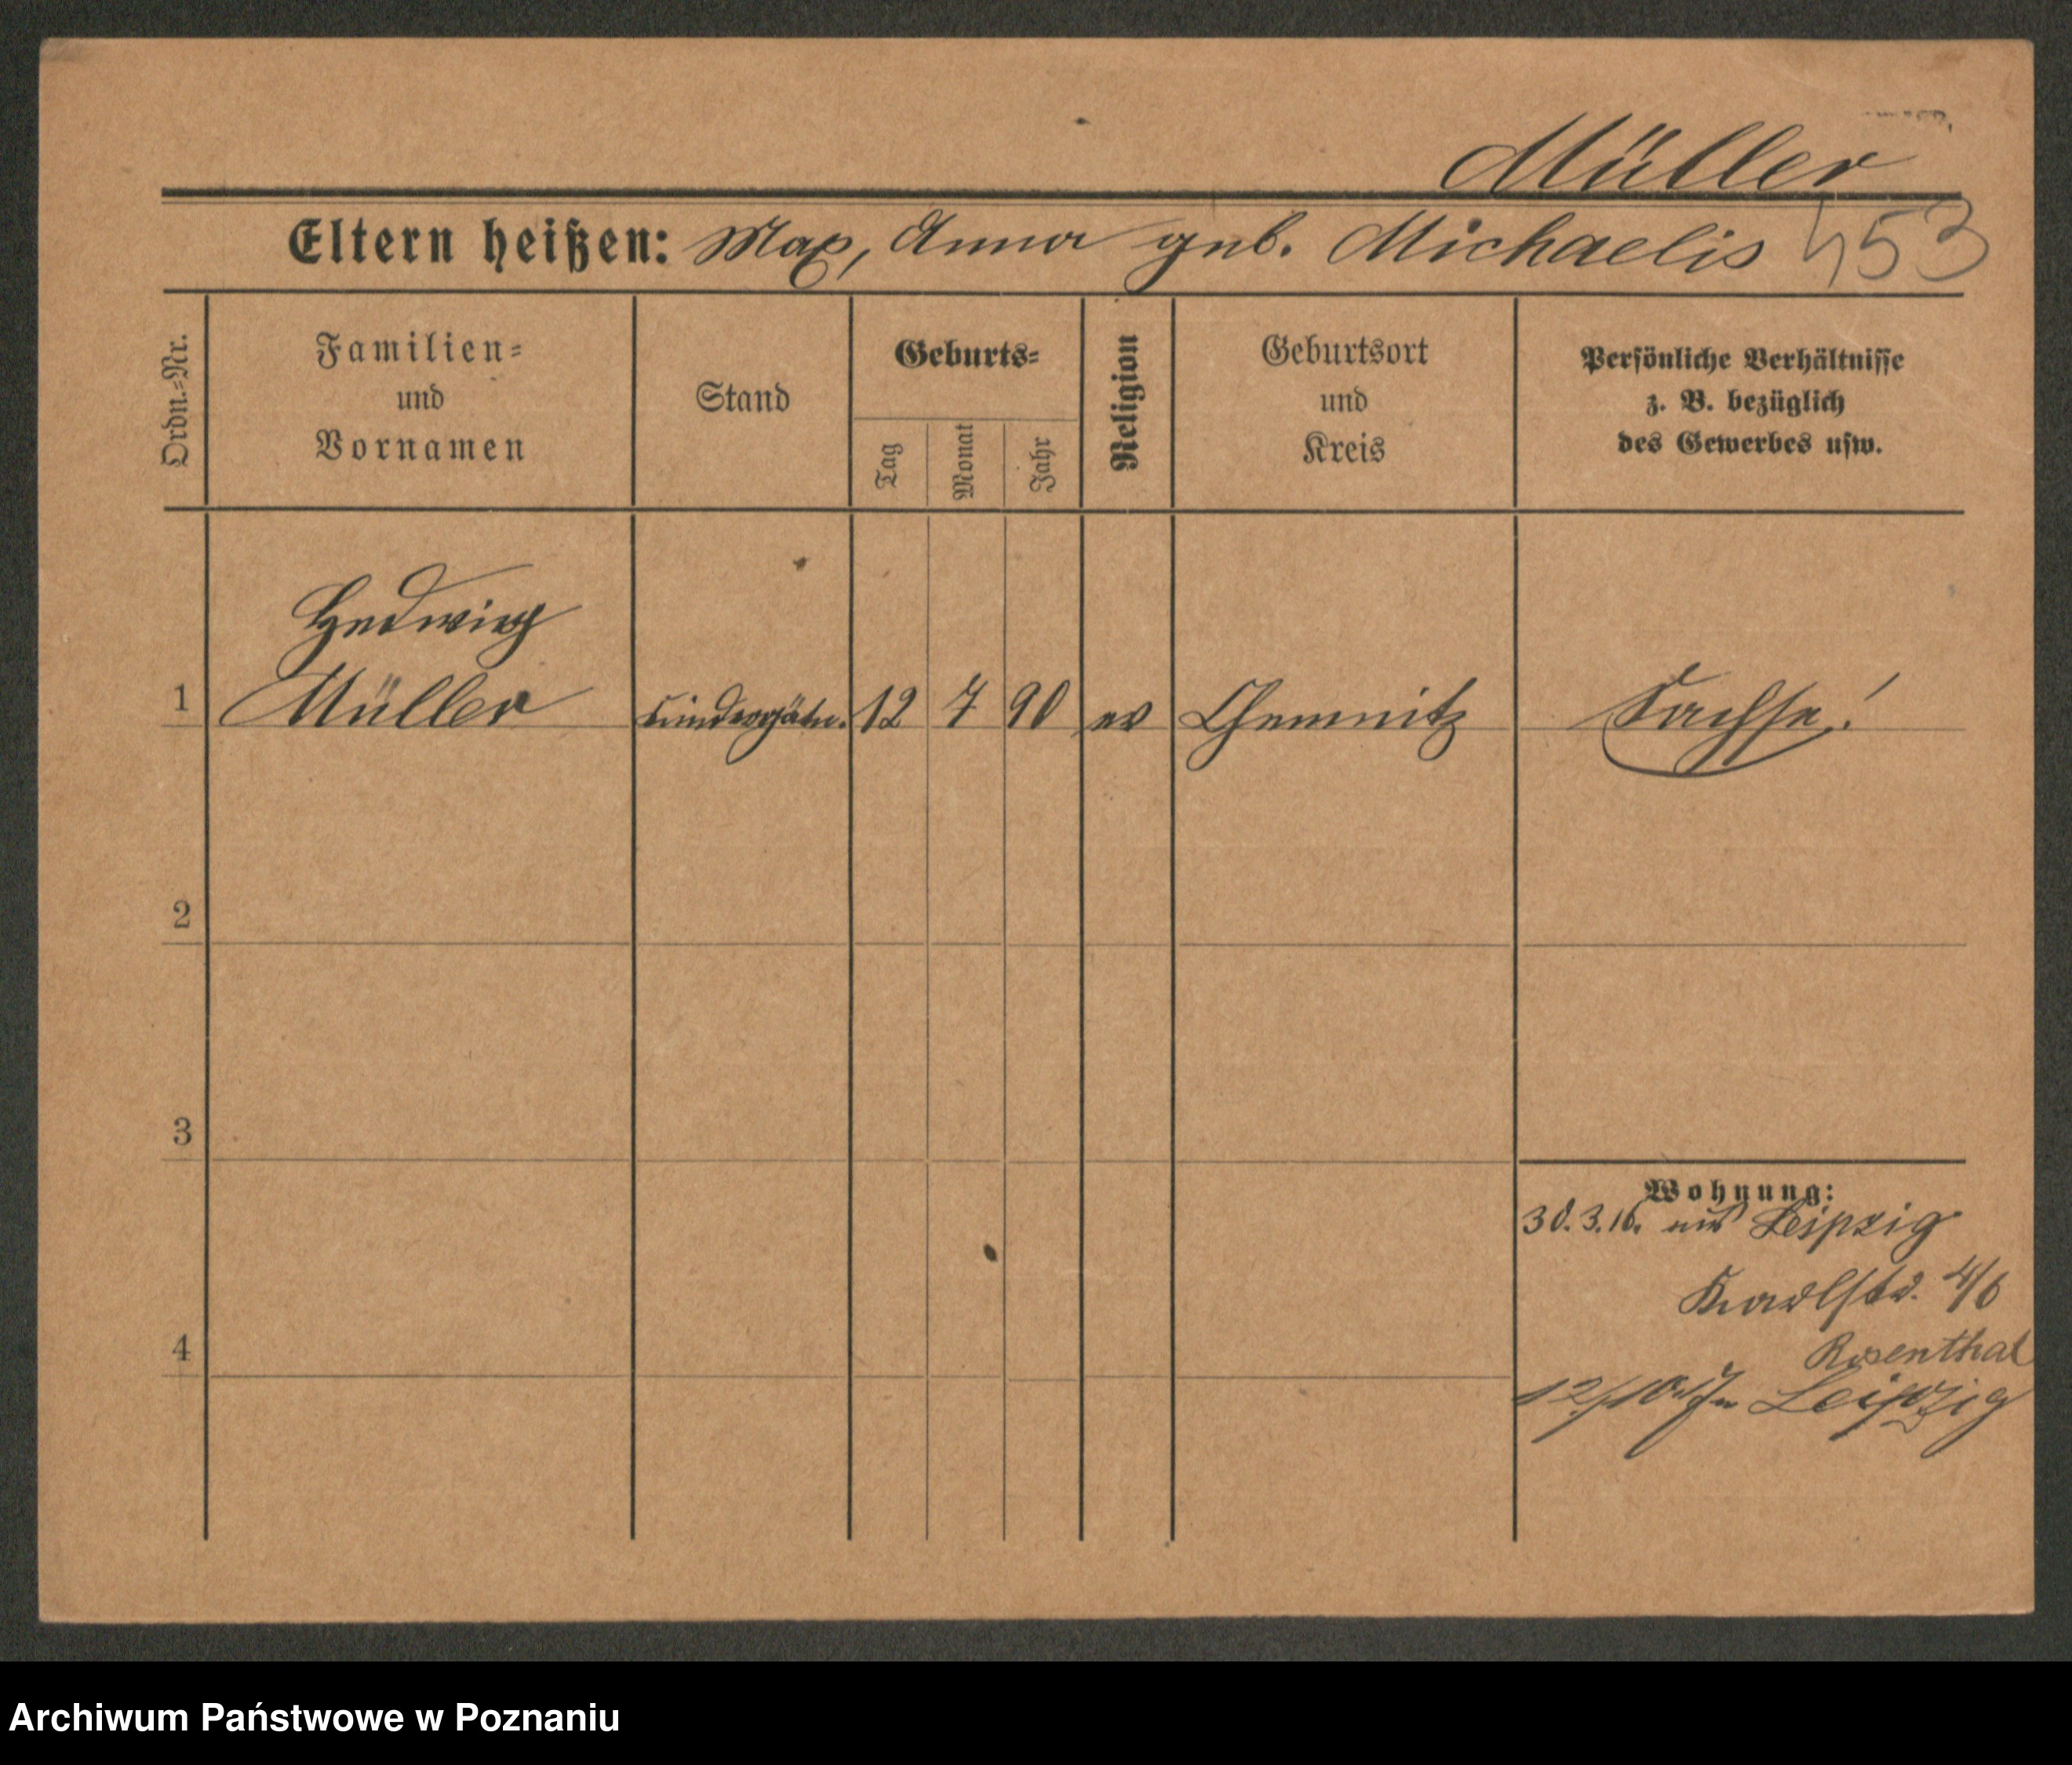 Müller
Eltern heißen: Max, Anna geb. Michaelis 453
Ordn.-Nr.
Familien-
und
Vornamen
Stand
Geburts-
Tag
Monat
Jahr
Religion
Geburtsort
und
Kreis
Persönliche Verhältnisse
z. B. bezüglich
des Gewerbes usw.
Hedwig
1 Müller Kindergätn. 12 7 90 ev Chemnitz Sachse!
2
3
Wohnung:
30.3.16. aus Leipzig
Karlstr. 4/6
4
Rosenthal
12/10 Leipzig
Archiwum Państwowe w Poznaniu